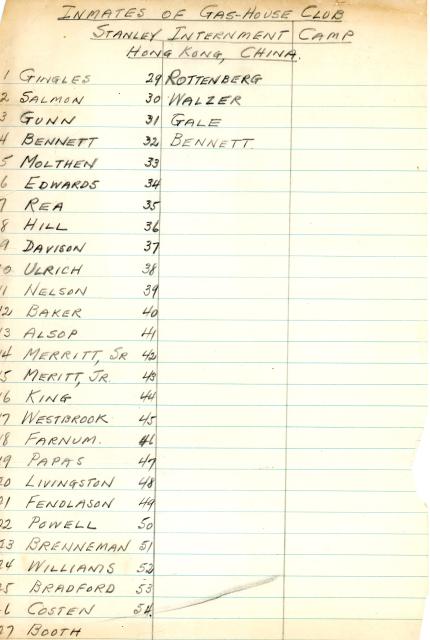 INMATES OF GAS-HOUSE CLUB
STANLEY INTERNMENT CAMP
HONG KONG, CHINA.
1 GINGLES 29 ROTTENBERG
2 SALMON 30 WALZER
3 GUNN 31 GALE
4 BENNETT 32 BENNETT.
5 MOLTHEN 33
6 EDWARDS 34
7 REA 35
8 HILL 36
9 DAVISON 37
0 ULRICH 38
1 NELSON 39
12 BAKER 40
13 ALSOP 41
14 MERRITT, SR 42
15 MERITT, JR. 43
16 KING 44
17 WESTBROOK 45
18 FARNUM. 46
19 PAPAS 47
20 LIVINGSTON 48
21 FENDLASON 49
22 POWELL 50
23 BRENNEMAN 51
24 WILLIAMS 52
25 BRADFORD 53
26 COSTEN 54
27 BOOTH